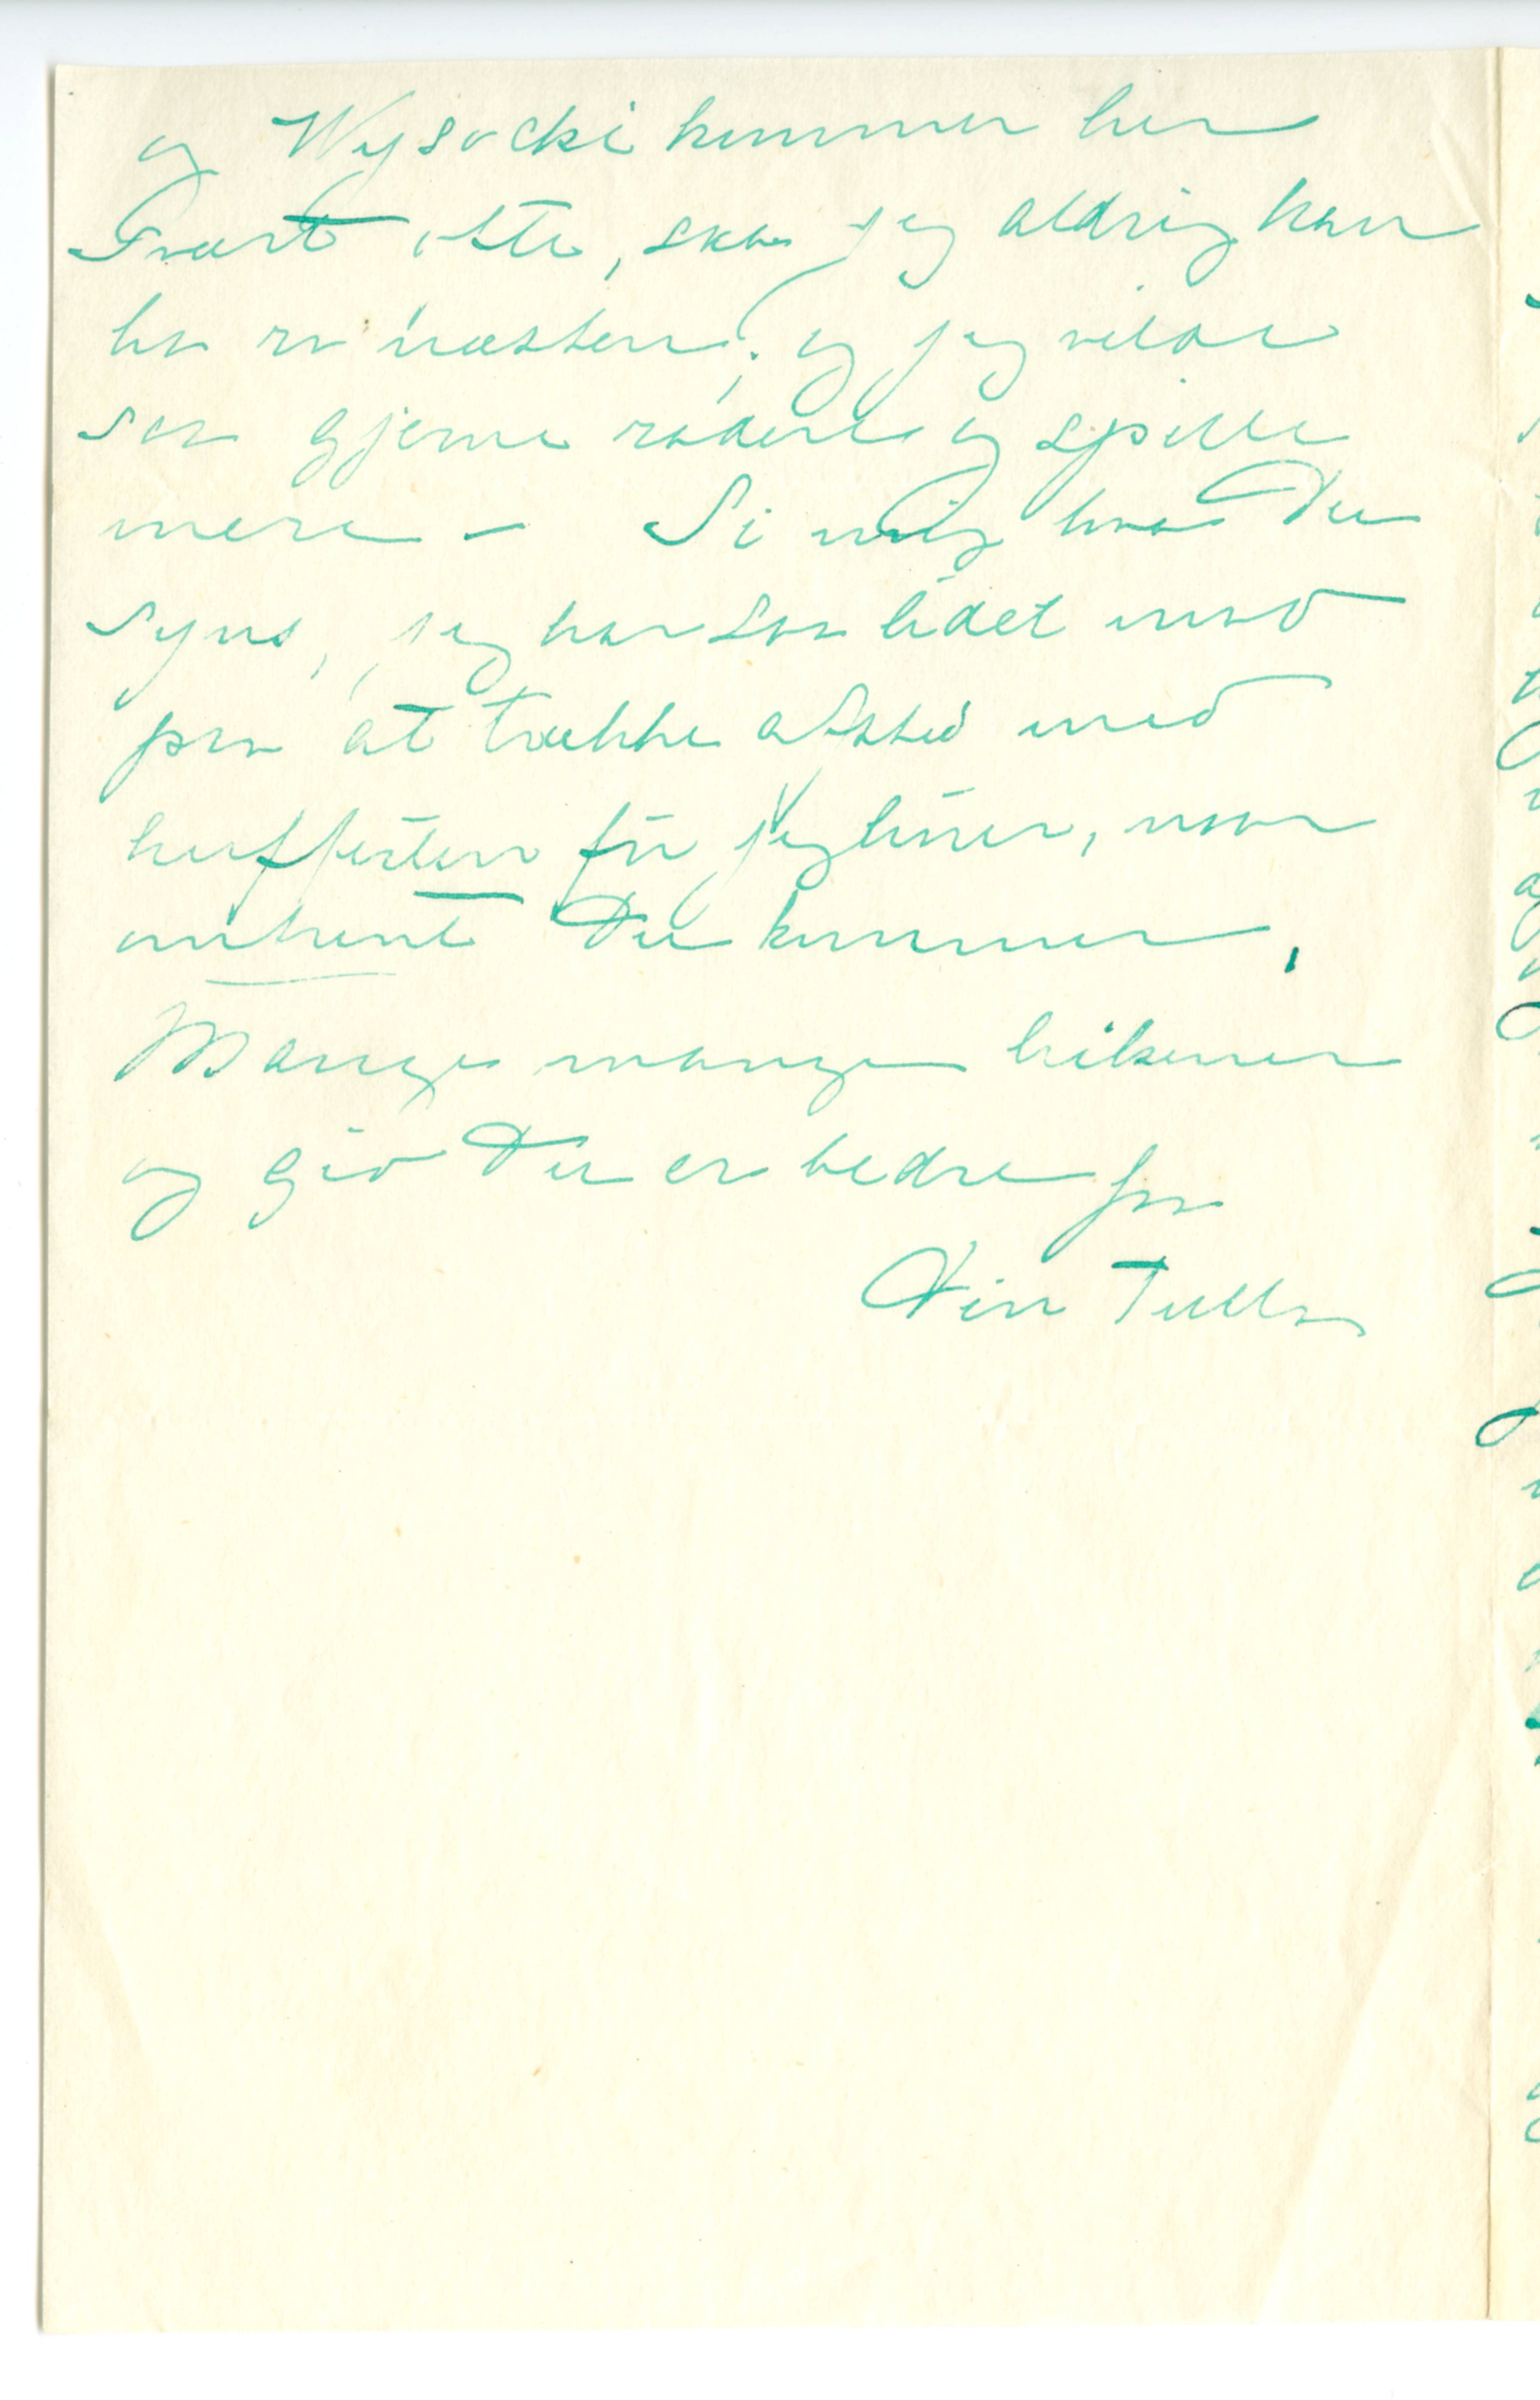 og Wysocki kommer her
svært ofte, saa jeg aldrig kan
ha ro næsten, og jeg vilde
saa gjerne radere og spille
mere – Si mig hva Du
synes, jeg har saa lidet mod
paa at trække afsted med
kufferten før jeg hører, naar
omtrent Du kommer,
Mange mange hilsener
og gid Du er bedre fra
Din Tulla